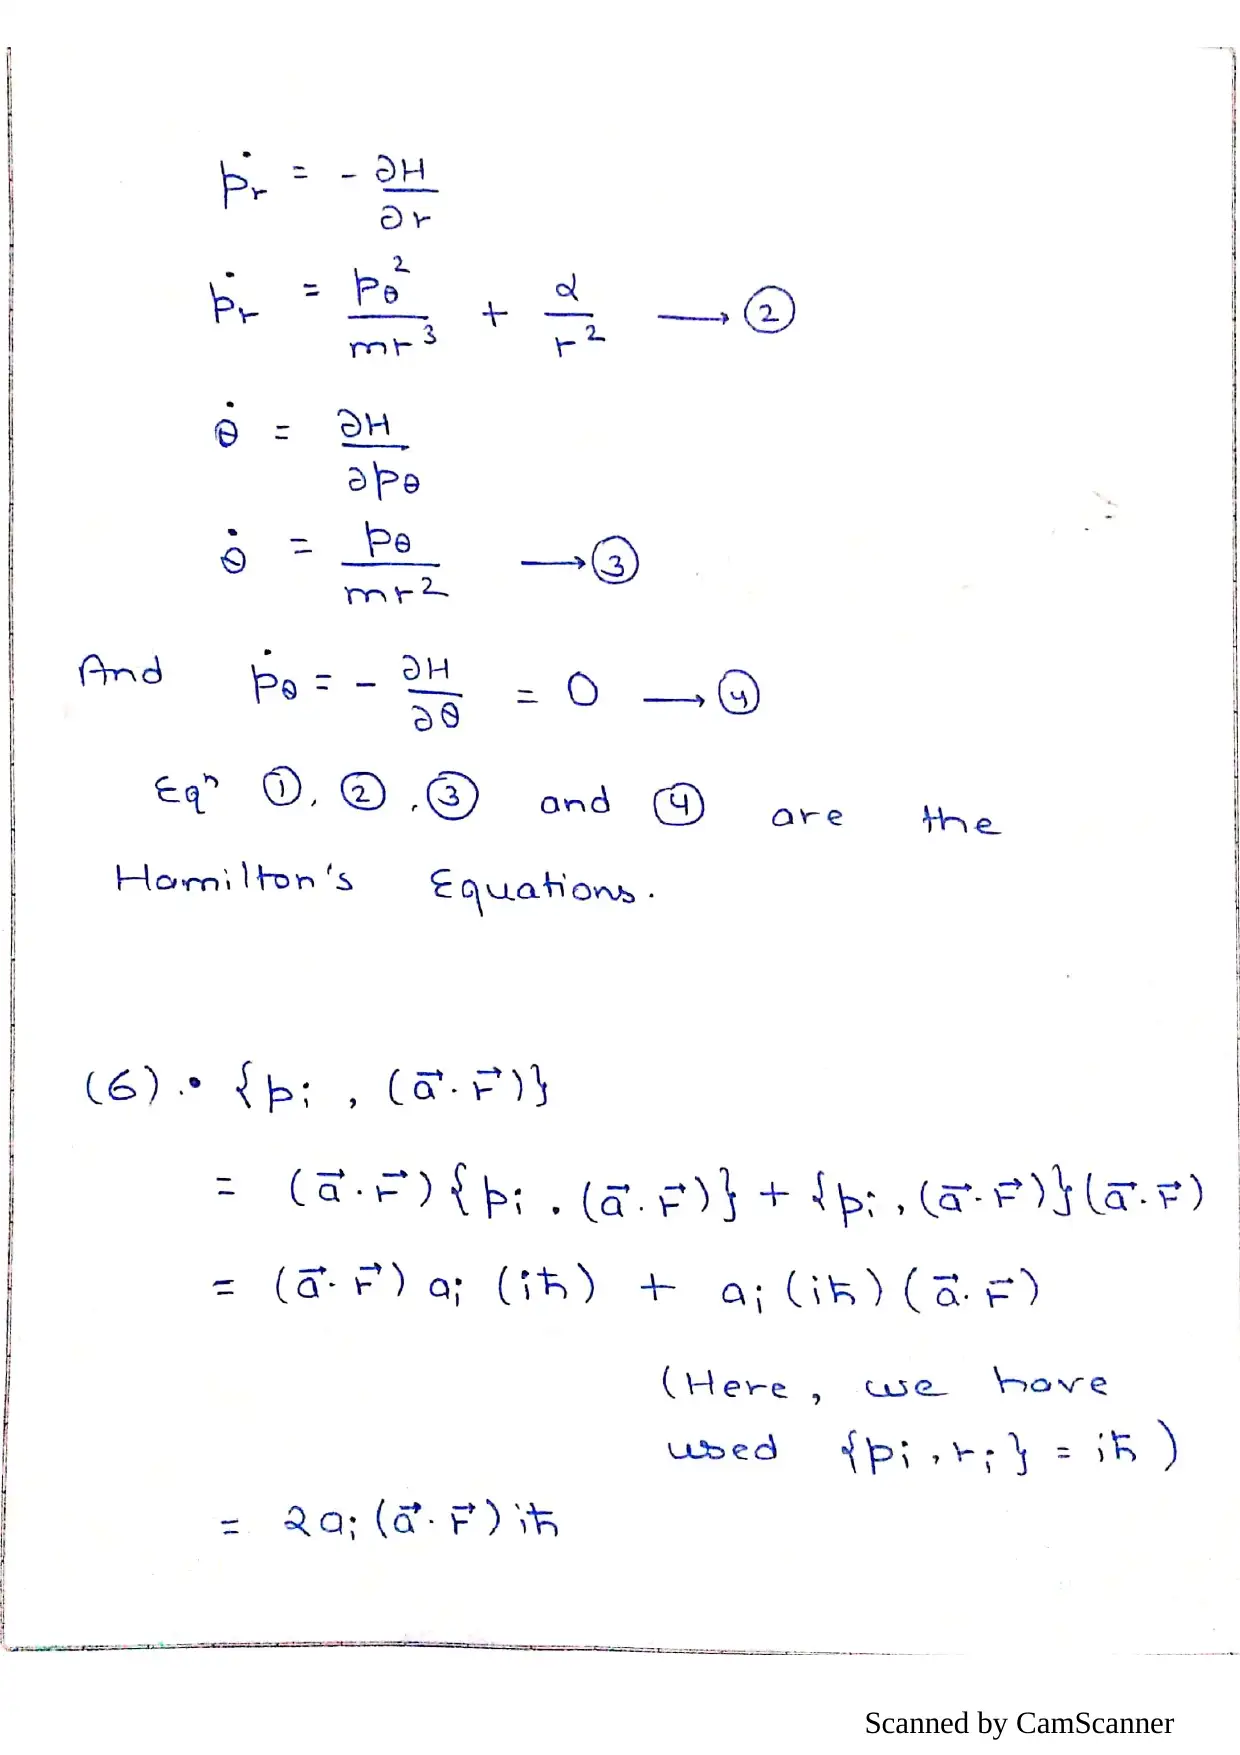 ṗr = - ∂H/∂r
ṗr = pθ²/mr³ + α/r² → ②
θ̇ = ∂H/∂pθ
θ̇ = pθ/mr² → ③
And ṗθ = - ∂H/∂θ = 0 → ④
Eqⁿ ①, ②, ③ and ④ are the
Hamilton's Equations.
(6). • {pi , (a⃗·r⃗)}
= (a⃗·r⃗){pi , (a⃗·r⃗)} + {pi , (a⃗·r⃗)}(a⃗·r⃗)
= (a⃗·r⃗) ai (iħ) + ai (iħ) (a⃗·r⃗)
(Here, we have
used {pi , ri} = iħ )
= 2ai (a⃗·r⃗) iħ
Scanned by CamScanner